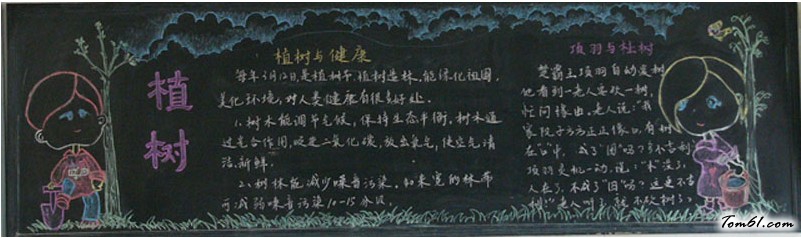 植树
植树与健康
每年3月12日,是植树节,植树造林,能绿化祖国,
美化环境,对人类健康有很多好处。
1.树木能调节气候,保持生态平衡。树木通
过光合作用,吸进二氧化碳,放出氧气,使空气清
洁、新鲜。
2、树林能减少噪音污染。40米宽的林带
可减弱噪音污染10-15分贝。
项羽与杜树
楚霸王项羽自幼爱树
他看到一老人要砍一树,
忙问缘由。老人说:"我
家院子方方正正像口,有树
在"口"中,成了"困"吗?多不吉利
项羽灵机一动,说:"木"没了,
人在了,不成了"囚"吗?这更不吉
利!"老人听了,就不砍树了
Tom61.com